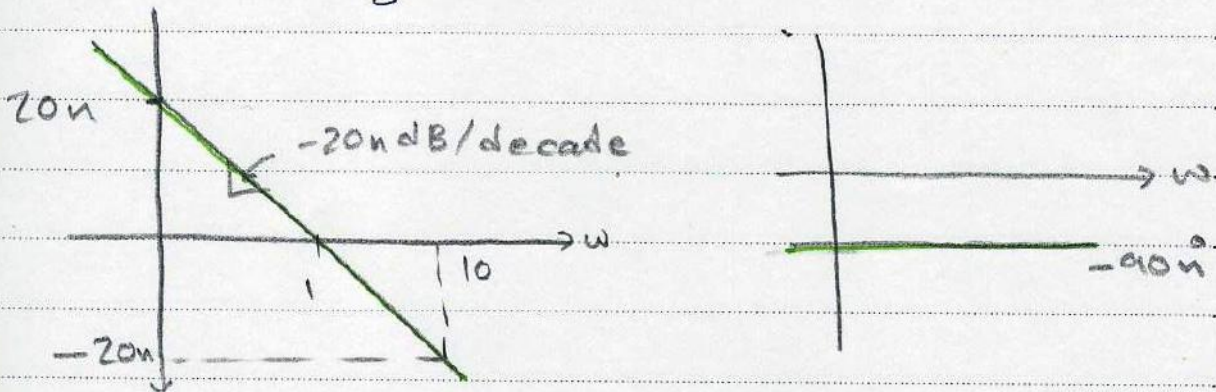 20n
-20n dB/decade
w
1
10
-20n
w
-90n°